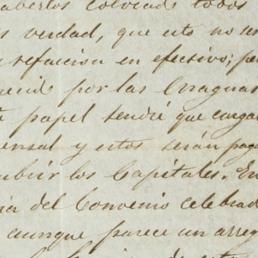 abertos colocado todos
s verdad, que esto no se
refacción en efectivo; pe
por las Uraguas
papel tendré que carga
ensal y estos serán pag
ubrir los Capitales. En
ia del Convenio celebrad
aunque parece un arreg